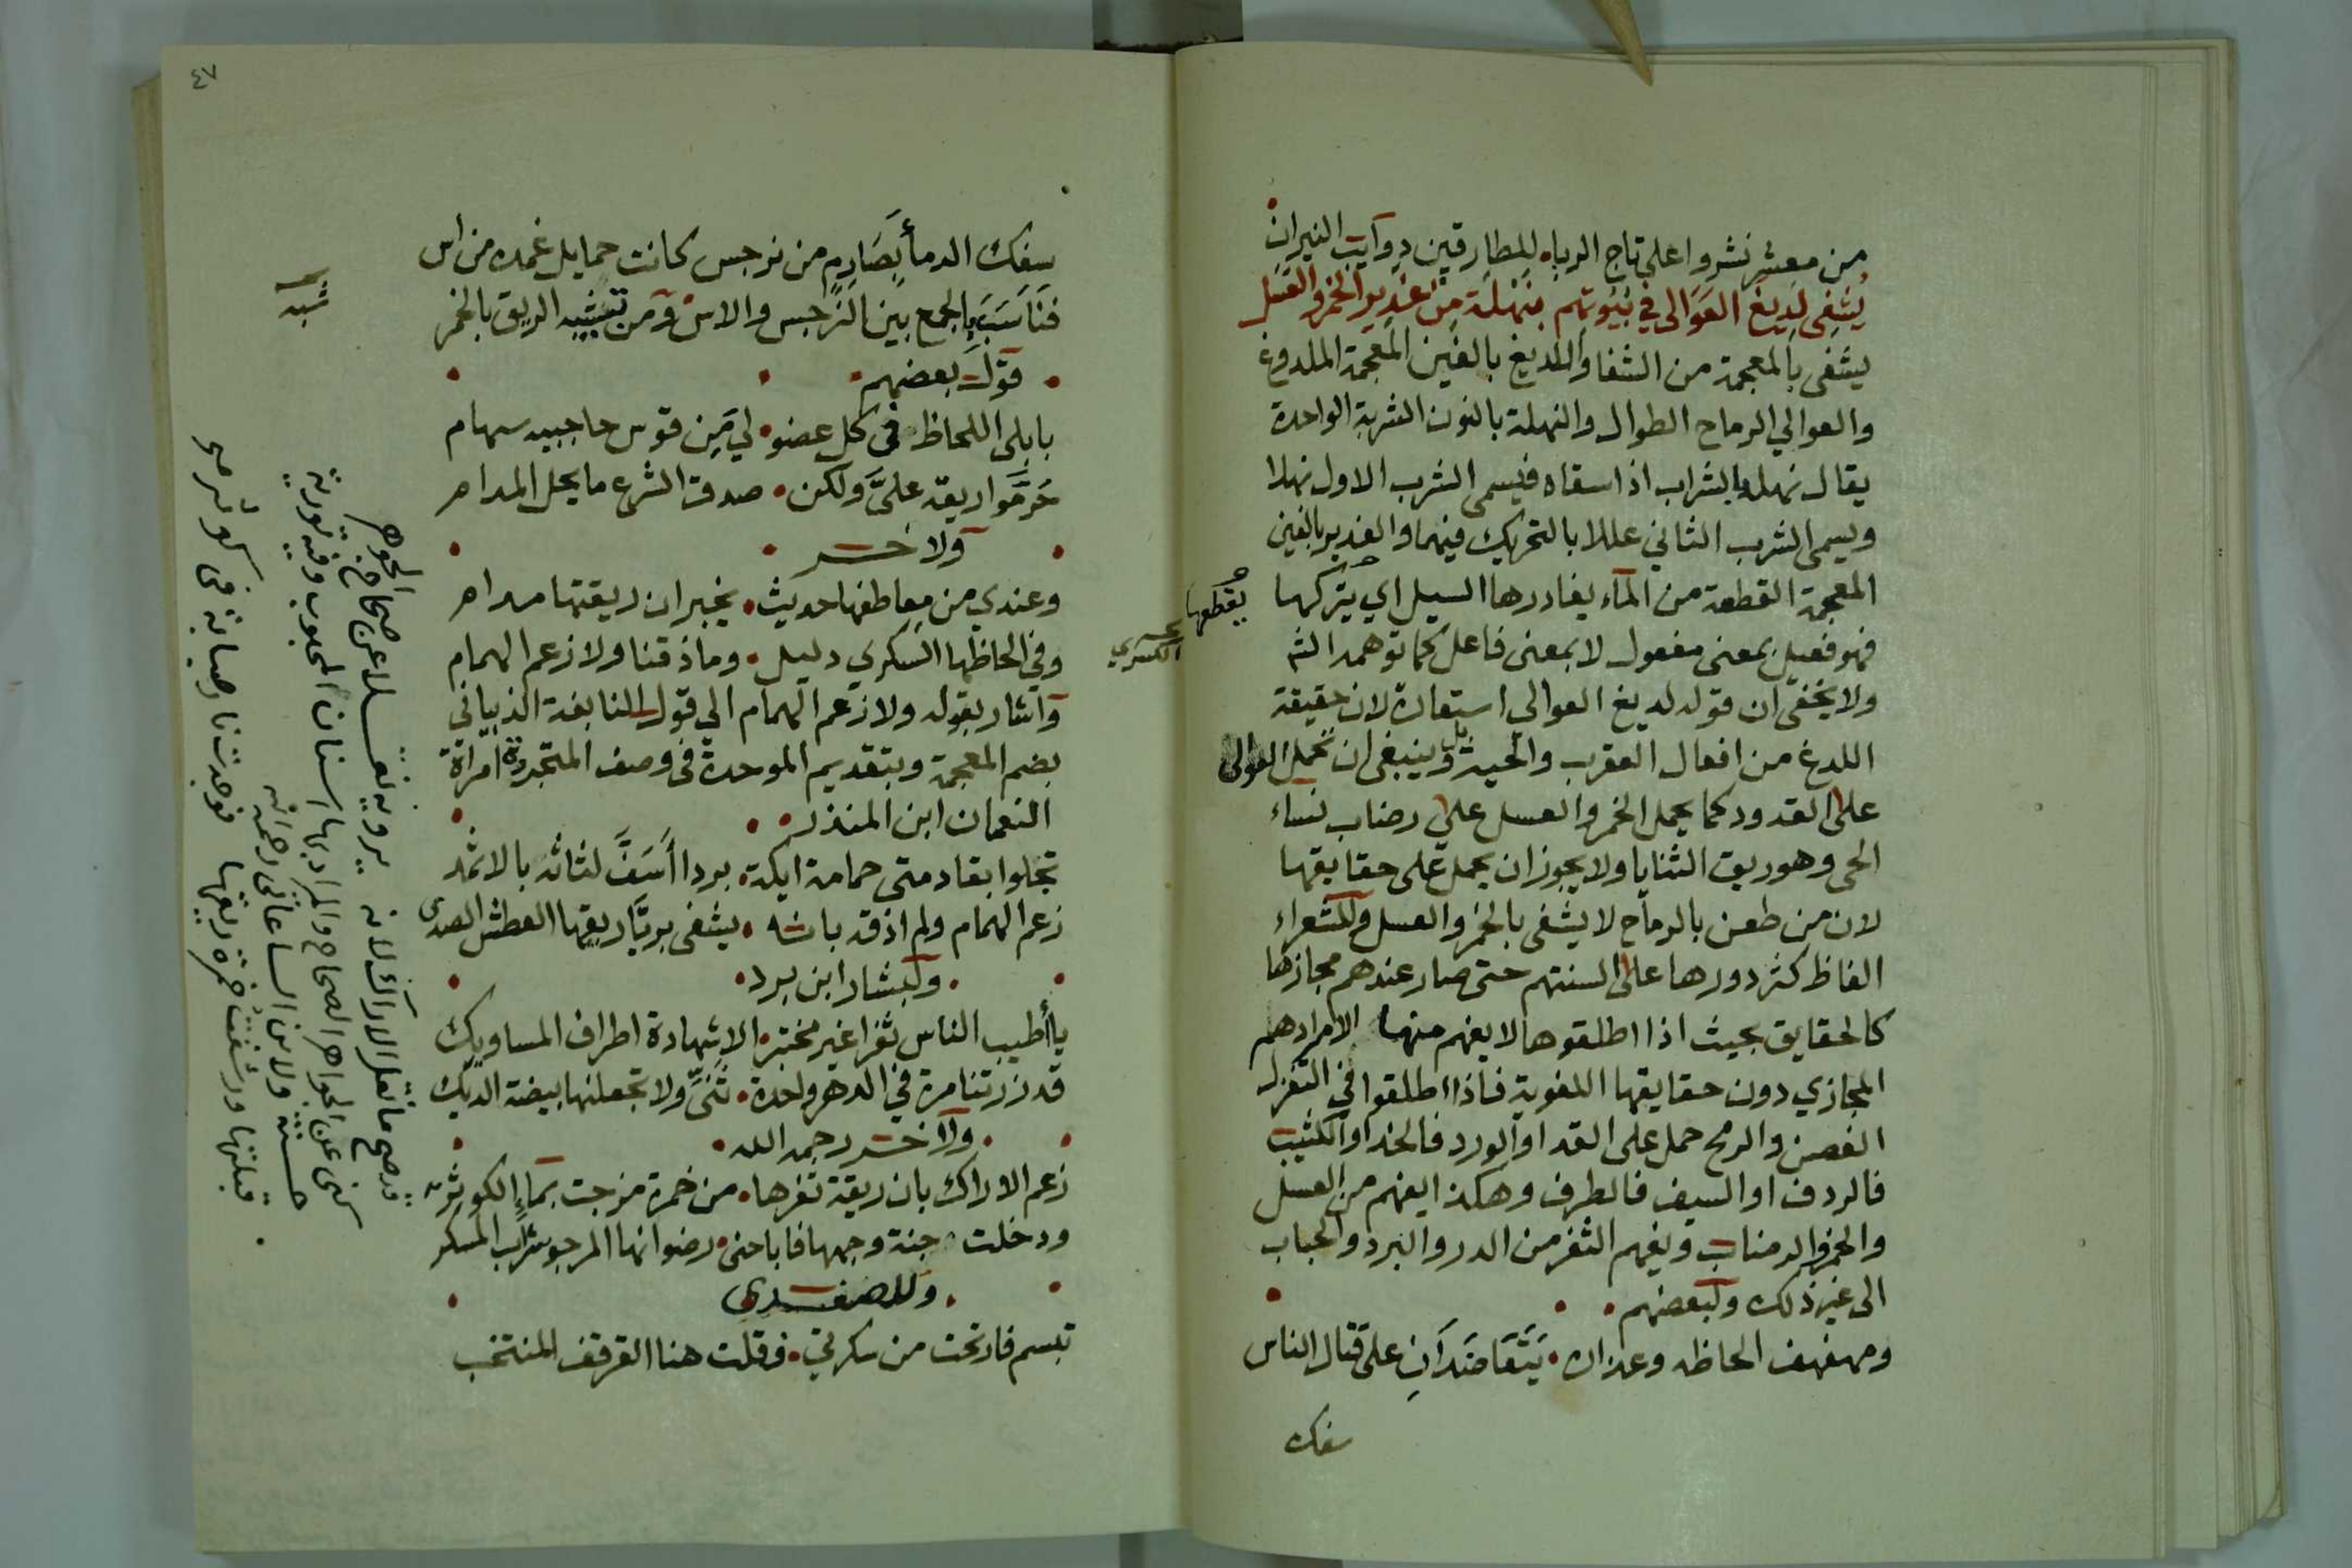 من معشر نشروا على تاج الرباه للطارقين ذوايب النيران
يُشفى لديغ العوالي في بيوتهم بنهلة من غدير الخمر والعسل
يشفى بالمعجمة من الشفا واللديغ بالغين المعجمة الملدوغ
والعوالي الرماح الطوال والنهلة بالنون الشربة الواحدة
يقال نهله بالشراب اذا سقاه فيسمى الشرب الاول نهلا
ويسمى الشرب الثاني عللا بالتحريك فيهما والغدير بالغين
المعجمة القطعة من المآء يغادرها السيل اي يتركها
يقطعها
فهو فعيل بمعنى مفعول لا بمعنى فاعل كما توهمه الشـ
ولا يخفى ان قوله لديغ العوالي استعارة لان حقيقة
اللدغ من افعال العقرب والحية بل وينبغي ان تحمل العوالى
على القدود كما يحمل الخمر والعسل على رضاب نساء
الحى وهو ريق الثنايا ولا يجوز ان يحمل على حقايقها
لان من طعن بالرماح لا يشفى بالخمر والعسل وللشعراء
الفاظ كثر دورها على السنتهم حتى صار عندهم مجازها
كالحقايق بحيث اذا اطلقوها لا يفهم منها الامرادهم
المجازي دون حقايقها اللغوية فاذا اطلقوا في التغزل
الغصن والرمح حمل على القد او الورد فالخد او الكثيب
فالردف او السيف فالطرف وهكذا يفهم من العسل
والخمر الرضاب ويفهم الثغر من الدر والبرد والحباب
الى غير ذلك ولبعضهم
ومهفهف الحاظه وعذاره يتعاضدان على قتال الناس
سفك
٤٧
سفك الدمأ بصارم من نرجس كانت حمايل غمده من اس
فناسب بالجمع بين النرجس والاس ومن تشبيه الريق بالخمر
قول بعضهم
بابلى اللحاظ فى كل عضو لي من قوس حاجبيه سهام
حرموا ريقه علىّ ولكن صدق الشرع ما يحل المدام
ولاخر
وعندي من معاطفها حديث يخبر ان ريقتها مدام
وفي الحاظها السكري دليل وما ذقنا ولا زعم الهمام
واشار بقوله ولا زعم الهمام الى قول النابغة الذبياني
بضم المعجمة وبتقديم الموحدة فى وصف المتجردة امراة
النعمان ابن المنذر
تجلوا بقادمتى حمامة ايكة بردا أسف لثاته بالاثمد
زعم الهمام ولم اذقه بانه يشفى بريّا ريقها العطش الصدى
ولبشار ابن برد
يا أطيب الناس ثغرا غير مختبر الا شهادة اطراف المساويك
قد زرتنا مرة في الدهر واحدة ثنى ولا تجعلنها بيضة الديك
ولاخر رحمه الله
زعم الاراك بان ريقة ثغرها من خمرة مزجت بماء الكوثر
ودخلت جنة وجهها فاباحنى رضوانها المرجو شراب المسكر
وللصفدي
تبسم فارتحت من سكرتي وقلت هنا القرقف المنتخب
قد صح ما نقل الاراك لانه يرويه نقلا عن صحاح الجوهر
كنى عن الجواهر الصحاح والمراد بها اسنان المحبوب وفيه تورية
حسنة ولابن الساعاتى رحمه الله
قبلتها ورشفت خمرة ريقها فوجدت نار صبابة فى كوثر